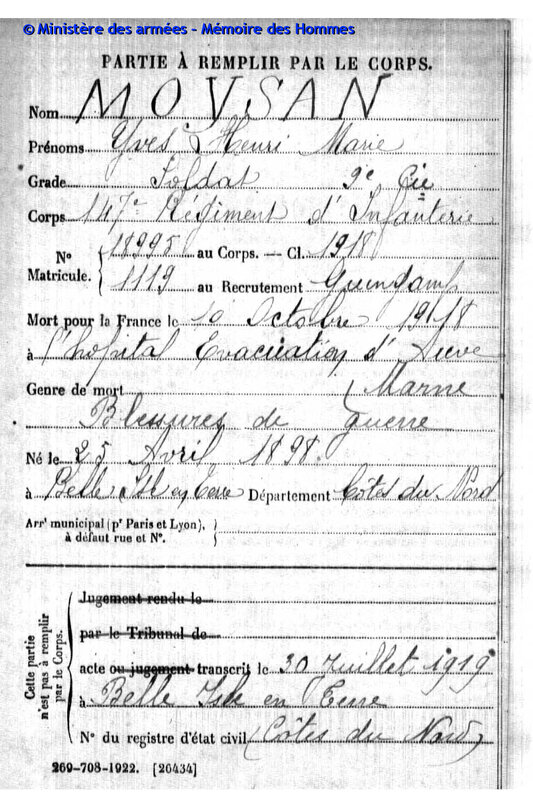 © Ministère des armées - Mémoire des Hommes
PARTIE À REMPLIR PAR LE CORPS.
Nom MOUSAN
Prénoms Yves Henri Marie
Grade Soldat 9e Cie
Corps 147e Régiment d'Infanterie
No Matricule. 18995 au Corps. — Cl. 1918
1119 au Recrutement Guingamp
Mort pour la France le 10 Octobre 1918
à l'hôpital Evacuation d'Auve
Genre de mort (Marne
Blessures de guerre
Né le 25 Avril 1898.
à Belle Isle en Terre Département Côtes du Nord
Arrt municipal (pr Paris et Lyon),
à défaut rue et No.
Cette partie n'est pas à remplir par le Corps.
Jugement rendu le
par le Tribunal de
acte ou jugement transcrit le 30 Juillet 1919
à Belle Isle en Terre
No du registre d'état civil (Côtes du Nord)
269-708-1922. [26434]